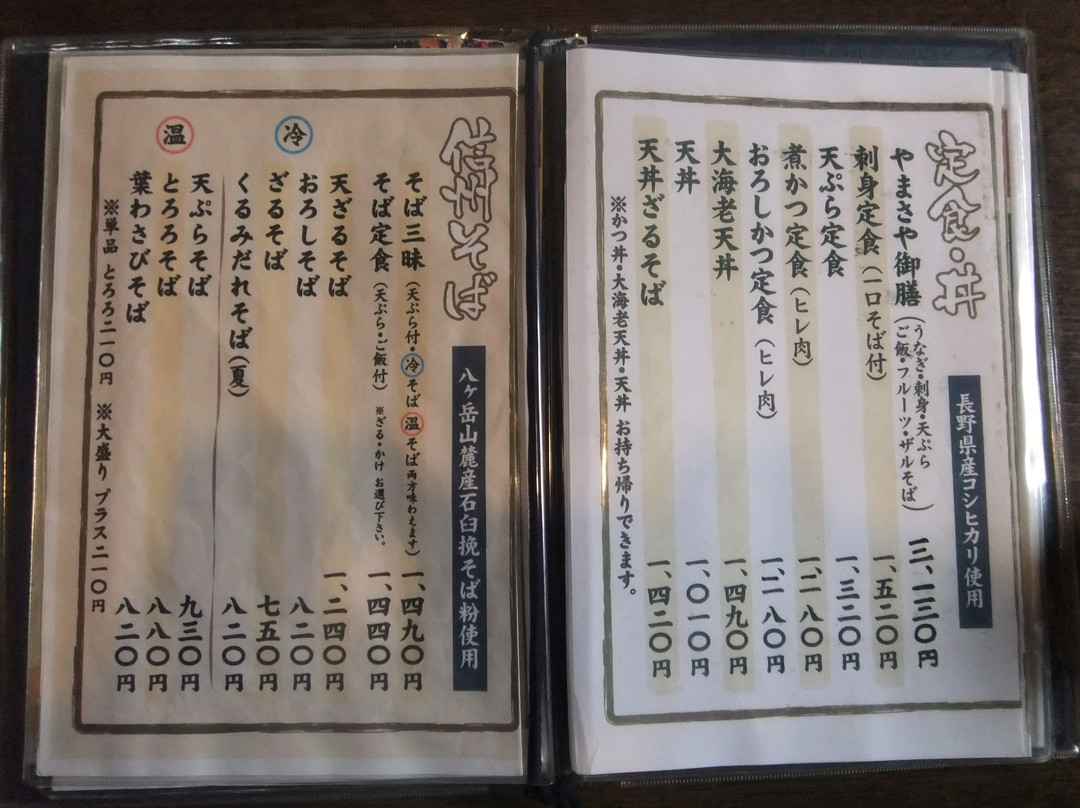 定食・丼
長野県産コシヒカリ使用
やまさや御膳（うなぎ・刺身・天ぷら
ご飯・フルーツ・ザルそば） 三、一三〇円
刺身定食（一口そば付） 一、五二〇円
天ぷら定食 一、三二〇円
煮かつ定食（ヒレ肉） 一、二八〇円
おろしかつ定食（ヒレ肉） 一、二八〇円
大海老天丼 一、四九〇円
天丼 一、〇一〇円
天丼ざるそば 一、四二〇円
※かつ丼・大海老天丼・天丼 お持ち帰りできます。
信州そば
八ヶ岳山麓産石臼挽そば粉使用
そば三昧（天ぷら付・冷そば 温そば両方味わえます） 一、四九〇円
そば定食（天ぷら・ご飯付）※ざる・かけ お選び下さい。 一、四四〇円
天ざるそば 一、二四〇円
冷
おろしそば 八二〇円
ざるそば 七五〇円
くるみだれそば（夏） 八二〇円
温
天ぷらそば 九三〇円
とろろそば 八八〇円
葉わさびそば 八二〇円
※単品 とろろ二一〇円 ※大盛り プラス二一〇円